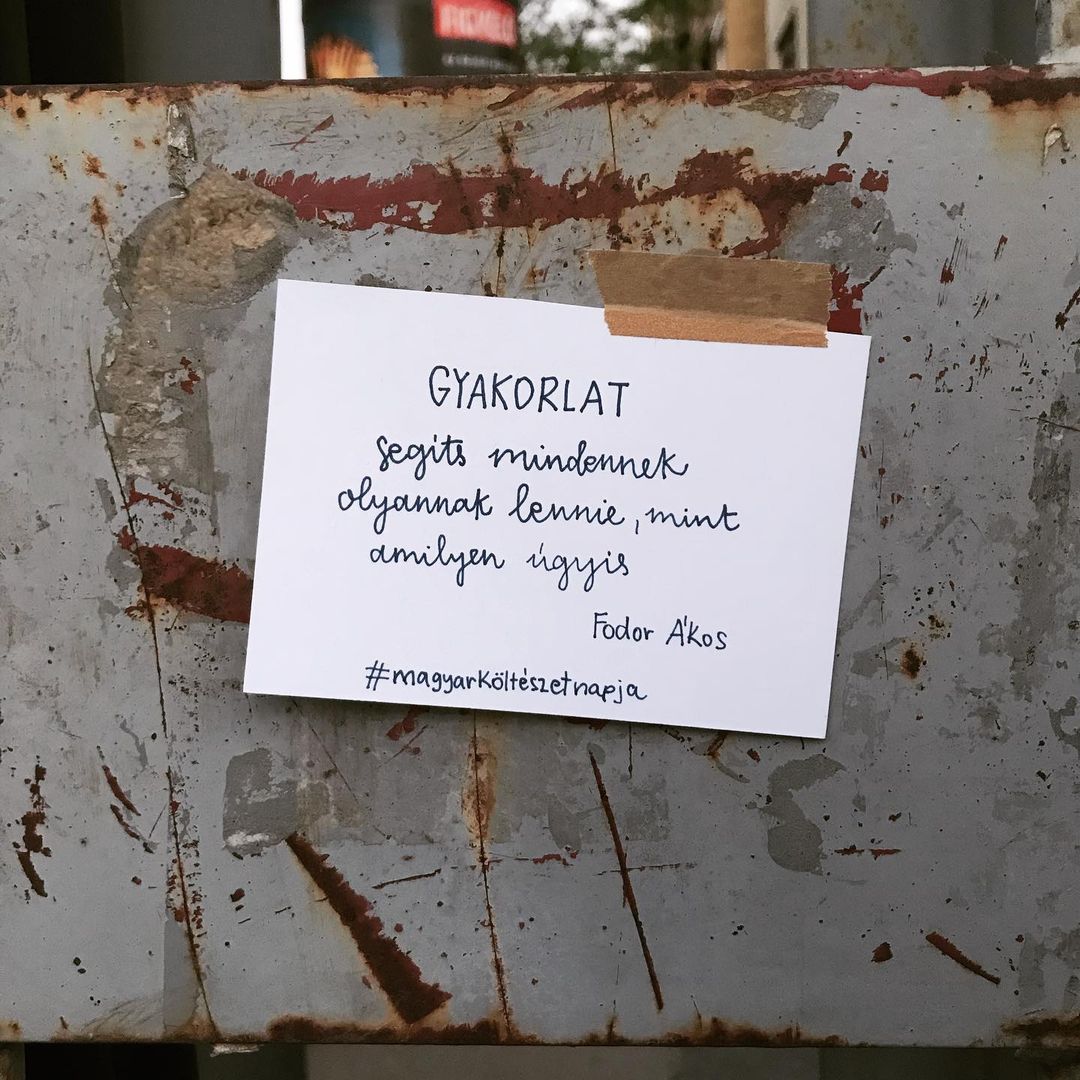 GYAKORLAT
segíts mindennek
olyannak lennie, mint
amilyen úgyis
Fodor Ákos
#magyarköltészetnapja